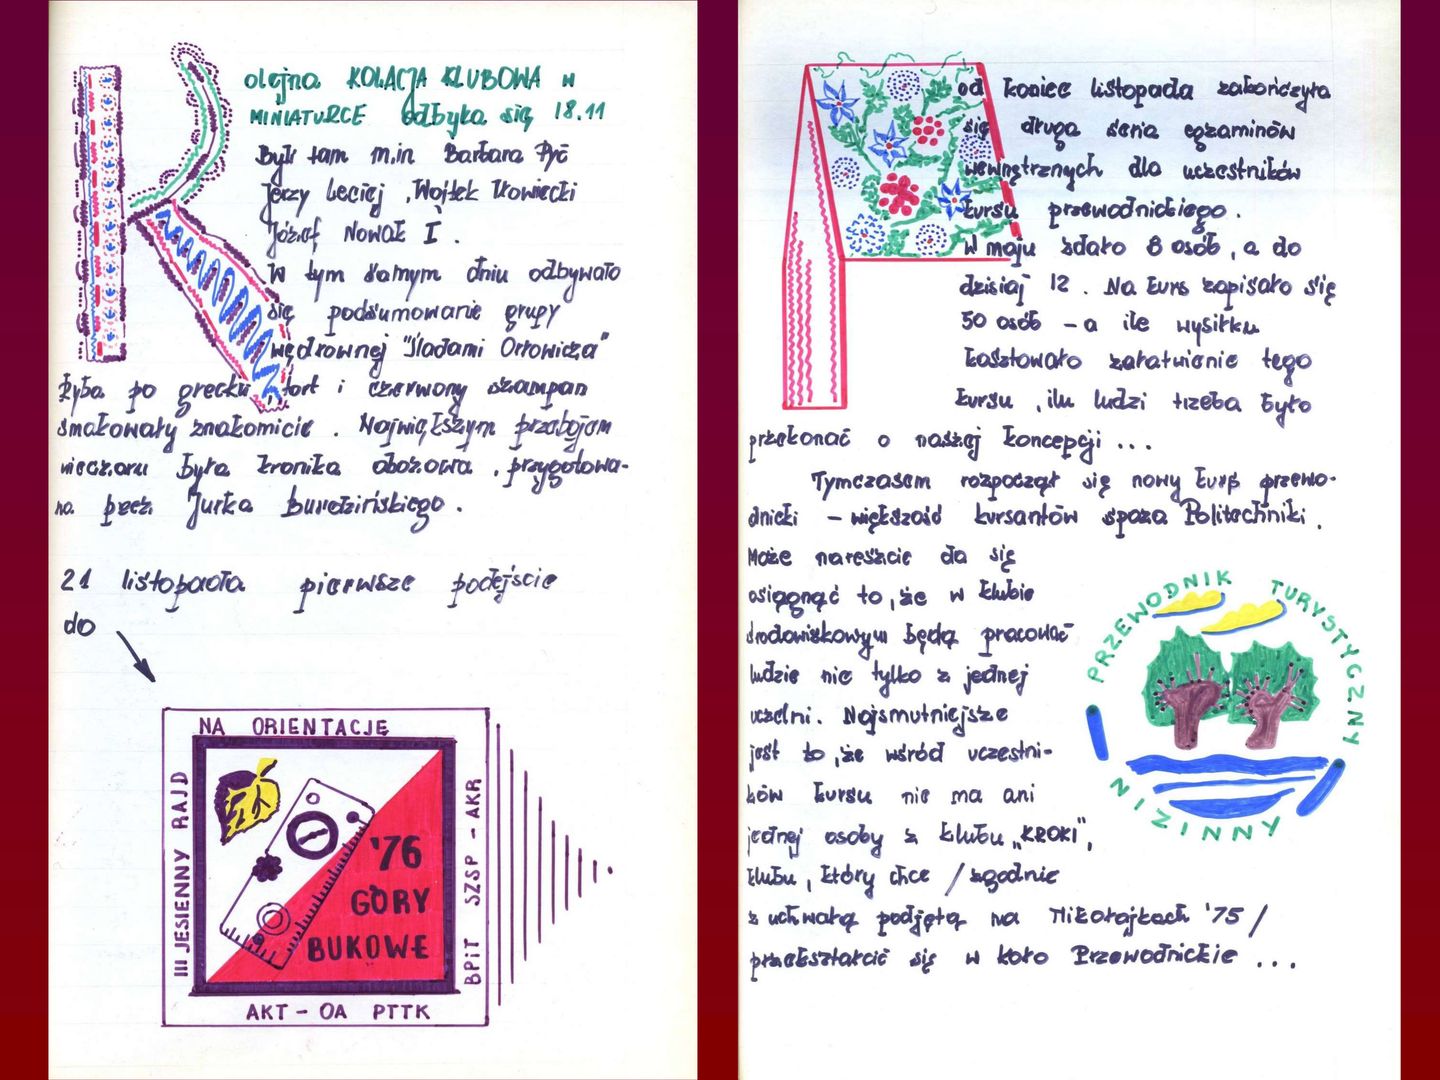 Kolejna KOLACJA KLUBOWA w
MINIATURCE odbyła się 18.11
Byli tam m.in Barbara Pyć
Jerzy Leciej, Wojtek Iłowiecki
Józef Nowak I.
W tym samym dniu odbywało
się podsumowanie grupy
wędrownej "Śladami Orłowicza"
Ryba po grecku, tort i czerwony szampan
smakowały znakomicie. Największym przebojem
wieczoru była kronika obozowa, przygotowa-
na przez Jurka
21 listopada pierwsze podejście
do
NA ORIENTACJĘ
III JESIENNY RAJD
'76
GÓRY
BUKOWE
BPiT SZSP - AKR
AKT - OA PTTK
Pod koniec listopada zakończyła
się druga seria egzaminów
wewnętrznych dla uczestników
kursu przewodnickiego.
W maju zdało 8 osób, a do
dzisiaj 12. Na kurs zapisało się
50 osób - a ile wysiłku
kosztowało załatwienie tego
kursu, ilu ludzi trzeba było
przekonać o naszej koncepcji ...
Tymczasem rozpoczął się nowy kurs przewo-
dnicki - większość kursantów spoza Politechniki.
Może nareszcie da się
osiągnąć to, że w klubie
środowiskowym będą pracować
ludzie nie tylko z jednej
uczelni. Najsmutniejsze
jest to, że wśród uczestni-
ków kursu nie ma ani
jednej osoby z klubu "KROKI",
klubu, który chce /zgodnie
z uchwałą podjętą na Mikołajkach '75/
przekształcić się w koło Przewodnickie ...
PRZEWODNIK TURYSTYCZNY
NIZINNY